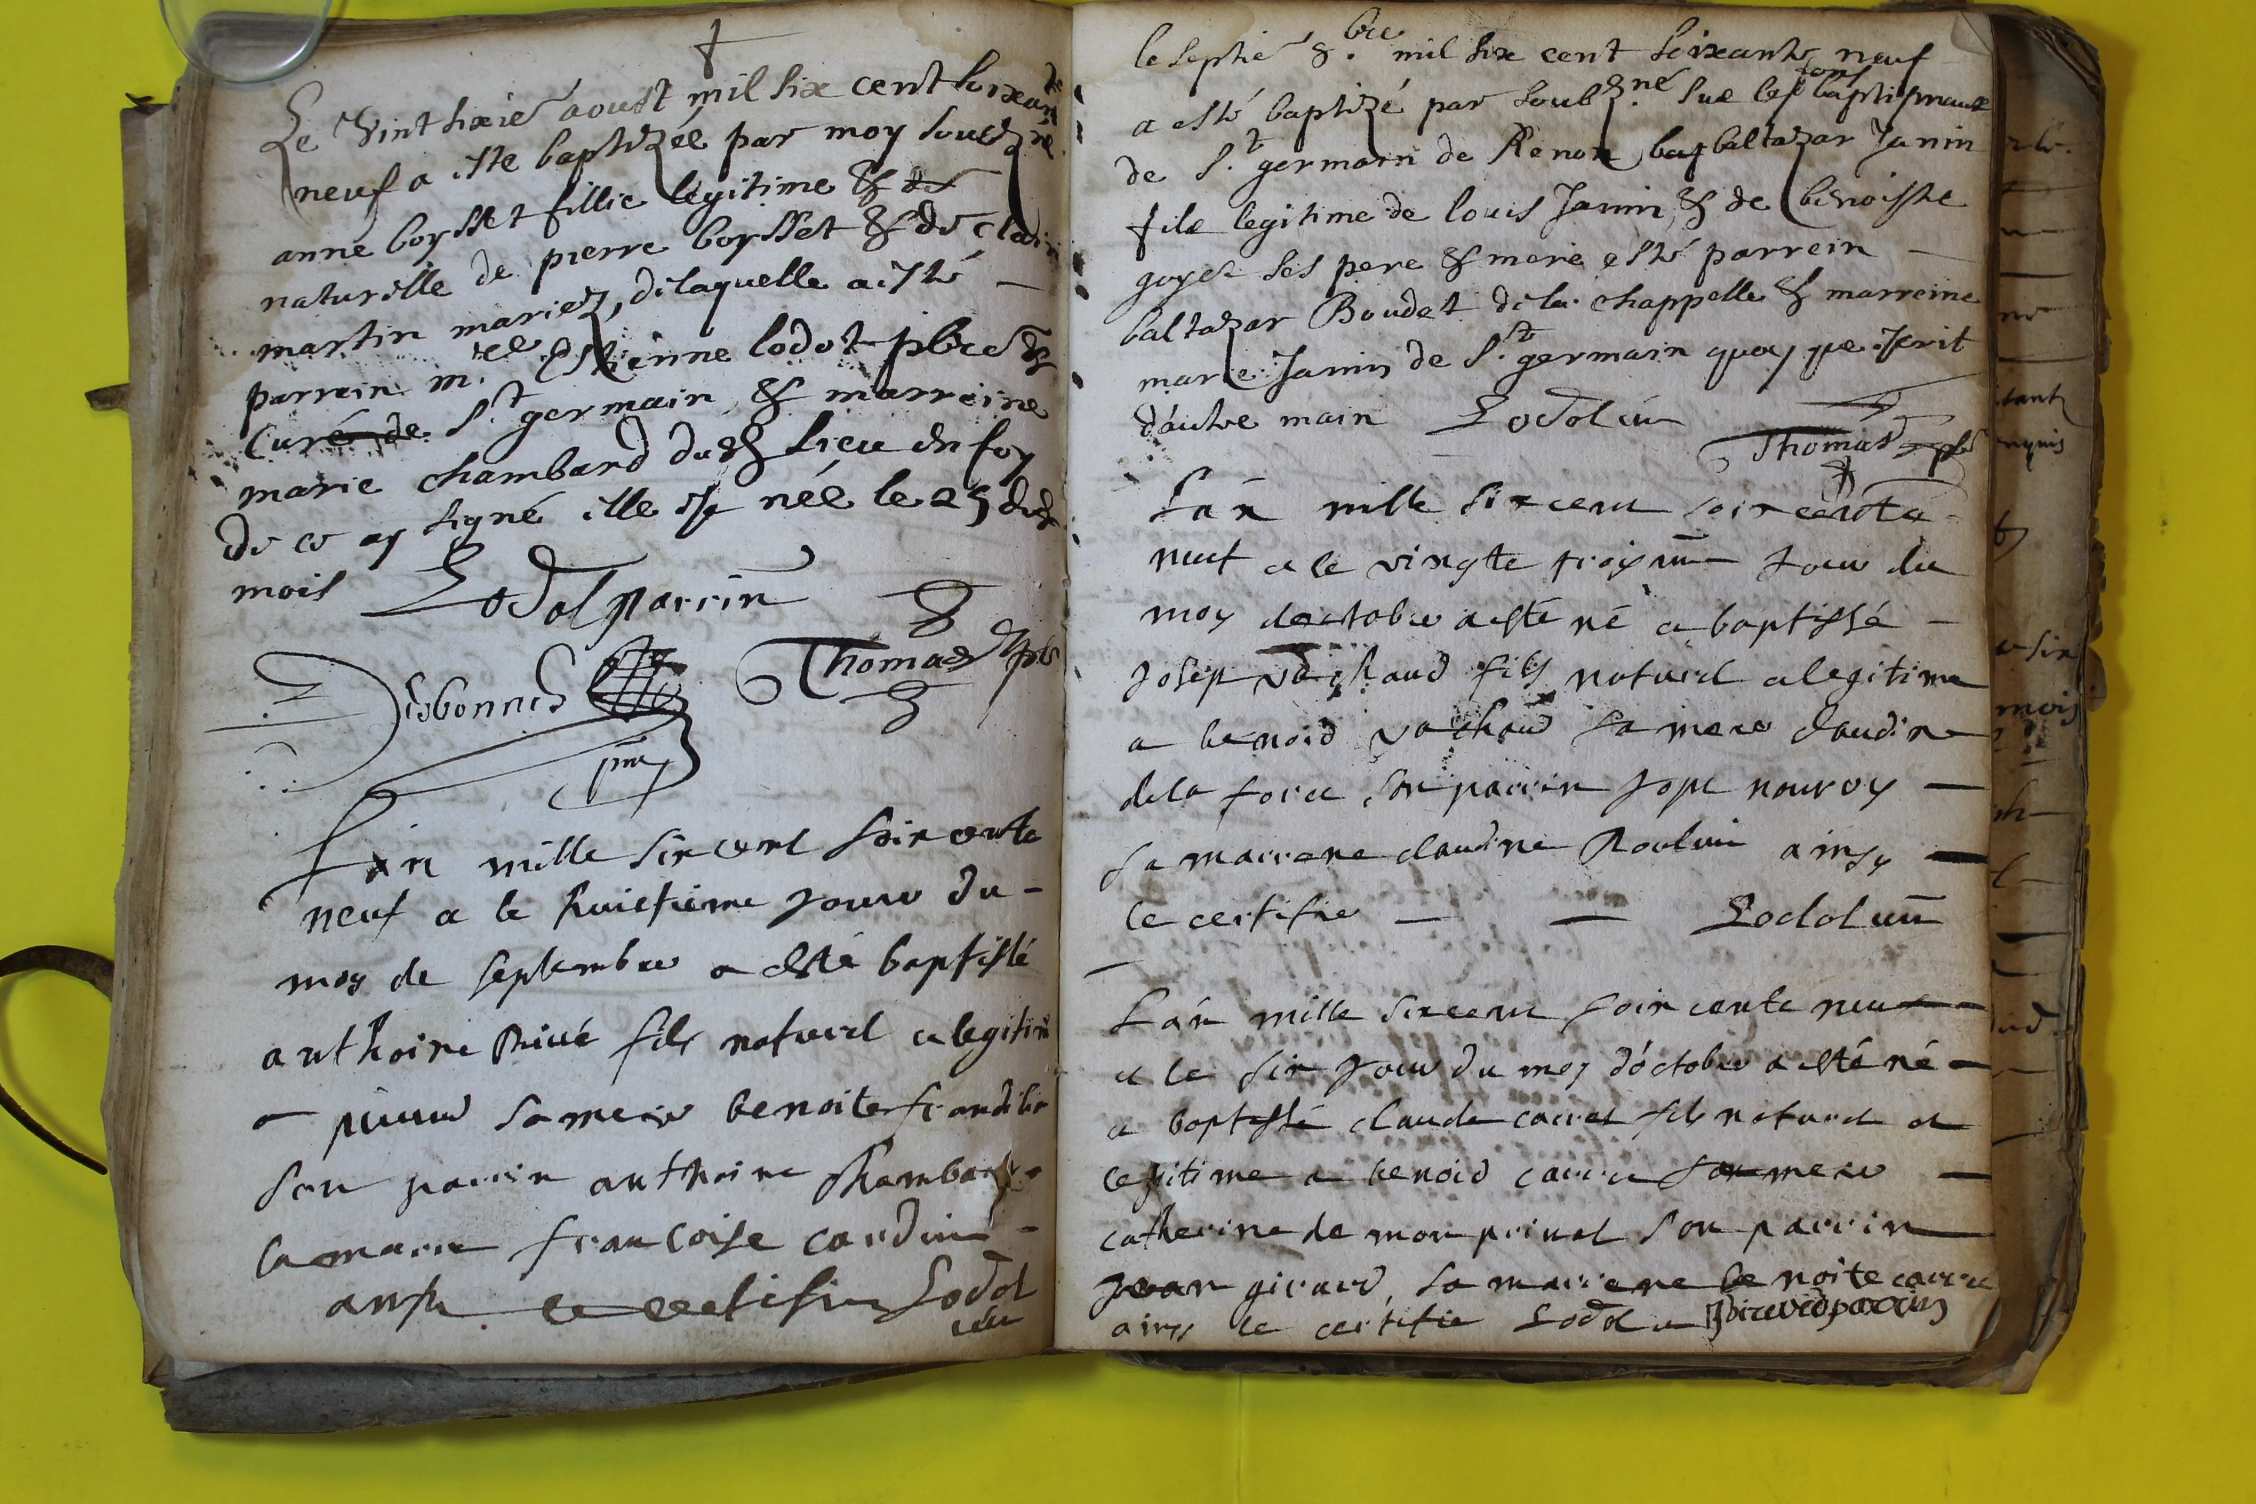 Le Vint sixie aoust mil six cent soixante
neuf a este baptizée par moy soubzné
anne boysset fillie legitime & de
naturelle de pierre boysset & de clau
martin mariez, delaquelle a esté
parrein m.re Estienne lodot pbre &
Curé de St germain & marreine
marie chambard dudt lieu en foy
de ce ay signé elle est née le 25 dud
mois Lodot parrin
Desbonnes Thomas pbr
L'an mille sixcent soixcente
neuf a le huictieme jour du
moy de septembre a esté baptissé
anthoine Privé fils naturel e legitime
a pierre sa mere benoite
son parrin anthoine Chambar
sa marre francoise cardin
ainsy le certifie Lodot
cur
le septie 8.bre mil six cent soixante neuf
a esté baptizé par soubzné sur les fons baptismaux
de St germain de Renon baltazar Janin
fils legitime de louis Janin & de benoiste
goyet ses pere & mere esté parrein
baltazar Boudet de la chappelle & marreine
marie Janin de St germain quoy que escrit
d'autre main Lodot cur
Thomas pbr
L'an mille sixcent soixcente
neuf e le vingte troysiem jour du
moy doctobre a esté né e baptissé
Josep vachaud fils naturel e legitime
a benoid vachaud sa mere claudine
dela force son parrin
sa marrene claudine ainsy
le certifie Lodot cur
L'an mille sixcent soixcente neuf
e le six jour du moy d'octobre a esté né
e baptissé claude carret fils naturel et
legitime a benoid carre sa mere
catherine de monprivet son parrin
Jean girard, sa marrene benoite carre
ainsy le certifie Lodot cu parrin